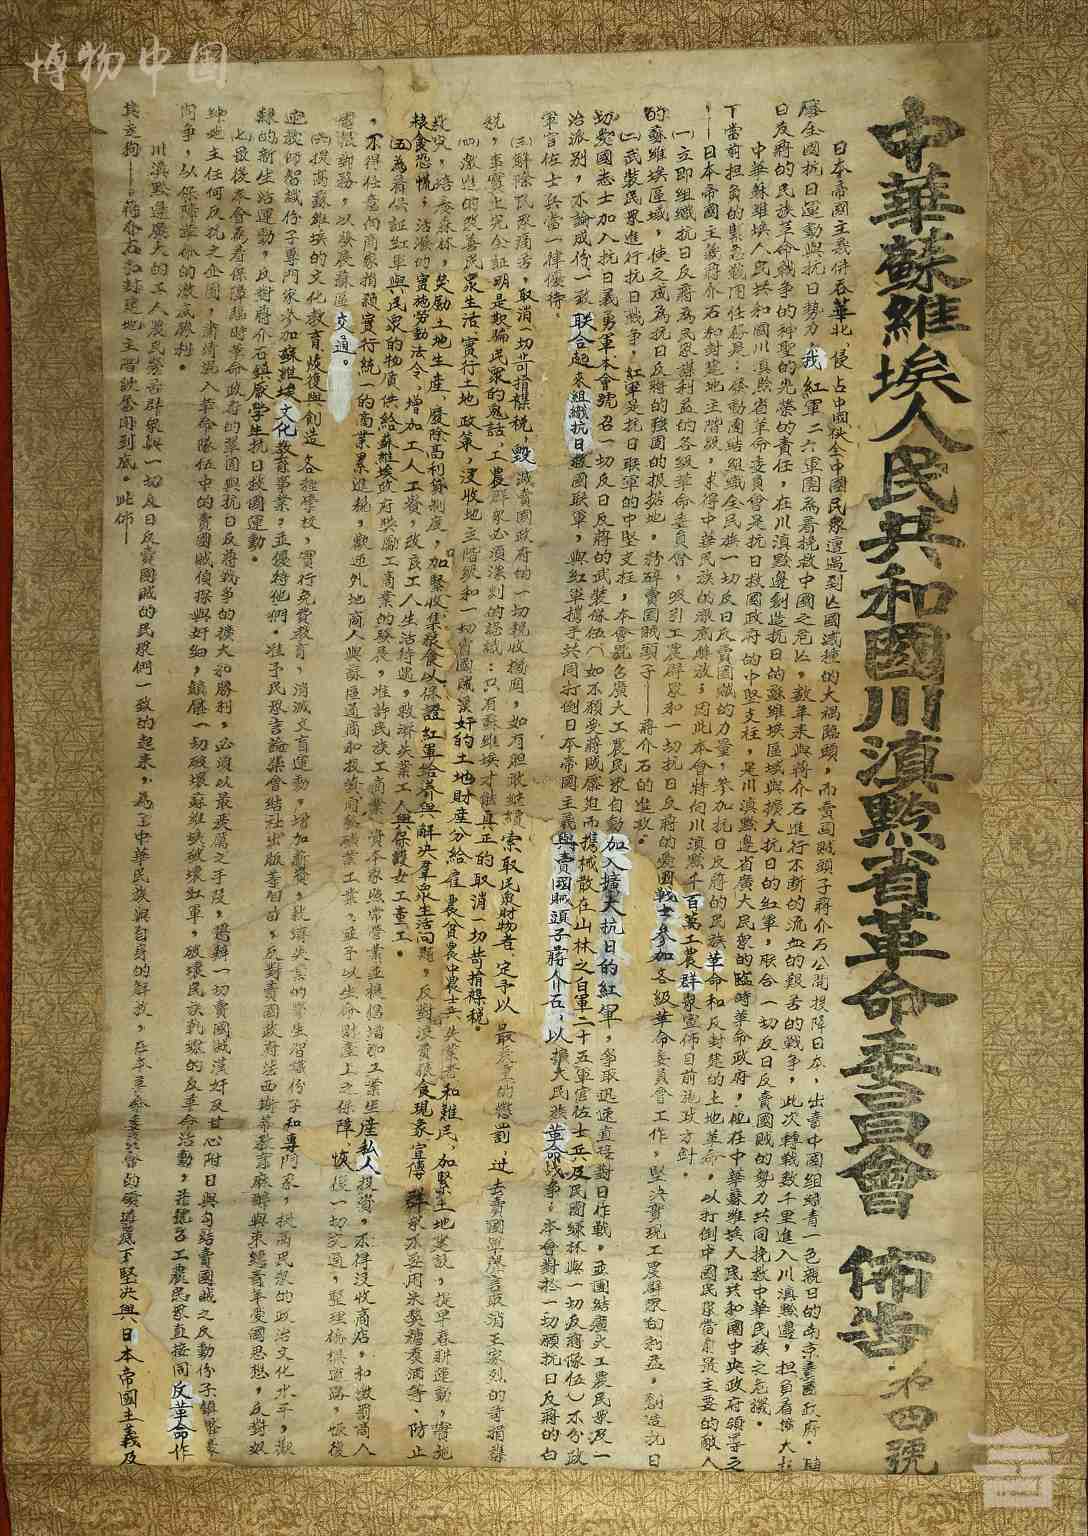 博物中国
中華蘇維埃人民共和國川滇黔省革命委員會 佈告 第四號
日本帝國主義併吞華北,侵占中國使全中國民眾遭遇到亡國滅種的大禍臨頭,而賣國賊頭子蔣介石公開投降日本,出賣中國組織青一色親日的南京賣國政府,鎮
壓全國抗日運動與抗日勢力,我紅軍二六軍團為着挽救中國之危亡,數年來與蔣介石進行不斷的流血的艱苦的戰爭,此次轉戰數千里進入川滇黔邊,担負着偉大抗
日反蔣的民族革命戰爭的神聖的光榮的責任,在川滇黔邊創造抗日的蘇維埃區域與擴大抗日的紅軍,联合一切反日反賣國賊的勢力共同挽救中華民族之危機.
中華蘇維埃人民共和國川滇黔省革命委員會是抗日救國政府的中堅支柱,是川滇黔邊省廣大民眾的臨時革命政府,他在中華蘇維埃人民共和國中央政府領導之
下當前担負的緊急戰鬥任務是:發動團結組織全民族一切反日反賣國賊的力量,參加抗日反蔣的民族革命和反封建的土地革命,以打倒中國民眾當前最主要的敵人
——日本帝國主義蔣介石和封建地主階級,求得中華民族的澈底解放;因此本會特向川滇黔千百萬工農群眾宣佈目前施政方針.
(一)立即組織抗日反蔣為民眾謀利益的各級革命委員會,吸引工農群眾和一切抗日反蔣的愛國戰士參加各級革命委員會工作,堅決實現工農群眾的利益,創造抗日
的蘇維埃區域,使之成為抗日反蔣的強固的根據地,粉碎賣國賊頭子——蔣介石的進攻.
(二)武裝民眾進行抗日戰爭,紅軍是抗日联軍的中堅支柱,本會號召廣大工農民眾自動加入擴大抗日的紅軍,爭取迅速直接對日作戰.並團結廣大工農民眾及一
切愛國志士加入抗日義勇軍本會號召一切反日反蔣的武裝隊伍(如不願受蔣賊壓迫而携械散在山林之白軍二十五軍官佐士兵及民團綠林與一切反蔣隊伍)不分政
治派别,不論成份,一致联合起來組織抗日救國联軍,與紅軍攜手共同打倒日本帝國主義與賣國賊頭子蔣介石,以擴大民族革命战争.本會對於一切願抗日反蔣的白
軍官佐士兵當一律優待.
(三)解除民眾痛苦,取消一切苛捐雜税,毁滅賣國政府的一切税收機關,如有胆敢繼續索取民眾財物者,定予以最嚴重的懲罰,过去賣國軍閥宣言取消王家烈的苛捐雜
税,事實上完全証明是欺騙民眾的鬼話,工農群眾必須深刻的認識:只有蘇維埃才能真正的取消一切苛捐襍税.
(四)澈底的改善民眾生活,實行土地政策,没收地主階級和一切賣國賊漢奸的土地財產分給雇農貧農中農士兵失業者和難民,加緊土地建設,提早春耕運動,實施
,培養森林,奖勵土地生產,廢除高利貸制度,加緊收集粮食以保證紅軍給養與解決羣眾生活问題,反對浪費粮食現象宣傳群眾不要用米熬糖煮酒等,防止
粮食恐慌;活潑的實施勞動法令,增加工人工資,改良工人生活待遇,救濟失業工人與保護女工童工.
(五)為着保証紅軍與民眾的物質供給蘇維埃政府奖勵工商業的發展,准許民族工商業資本家照常營業並提倡增加工業生產私人投資,不得没收商店,和繳罰商人
,不得任意向商家捐款實行統一的商業累進税,歡迎外地商人與蘇區通商和投資開發礦業工業,並予以生命財產上之保障,恢復一切交通,整理橋樑道路,恢復
電報郵務,以發展蘇區交通.
(六)提高蘇維埃的文化教育恢復與創造各種學校,實行免費教育,消滅文盲運動,增加薪資,救濟失業的學生智識份子和專門家,提高民眾的政治文化水平,歡
迎教師智識份子專門家參加蘇維埃文化教育事業,並優待他們.准予民眾言論集會結社出版等自由,反對賣國政府法西斯蒂教育麻醉與束縛青年愛國思想,反對奴
隸的新生活運動,反對蔣介石鎮壓學生抗日救國運動.
(七)最後本會為着保障臨時革命政府的鞏固與抗日反蔣戰争的擴大和勝利,必須以最嚴厲之手段,懲辦一切賣國賊漢奸及甘心附日與勾結賣國賊之反動份子鎮壓豪
紳地主任何反抗之企圖,肅清混入革命隊伍中的賣國賊偵探與奸細,鎮壓一切破壞蘇維埃破壞紅軍,破壞民族戰線的反革命活動,並號召工農民眾直接同反革命作
鬥爭,以保障革命的澈底勝利.
川滇黔邊廣大的工人農民勞苦群眾與一切反日反賣國賊的民眾們一致的起來,為了中華民族與自身的解放,在本革命委員會的領導底下堅決與日本帝國主義及
其走狗——蔣介石和封建地主階級奮鬥到底.此佈—